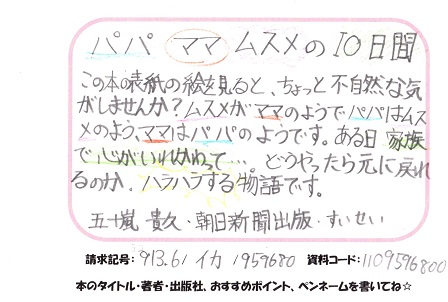 パパ ママ ムスメの10日間
この本の表紙の絵を見ると、ちょっと不自然な気
がしませんか?ムスメがママのようでパパはムス
メのよう、ママはパパのようです。ある日家族
で心がいれかわって…。どうやったら元に戻れ
るのか、ハラハラする物語です。
五十嵐 貴久・朝日新聞出版・すいせい
請求記号: 913.61 イカ 1959680 資料コード: 1109596800
本のタイトル・著者・出版社、おすすめポイント、ペンネームを書いてね☆